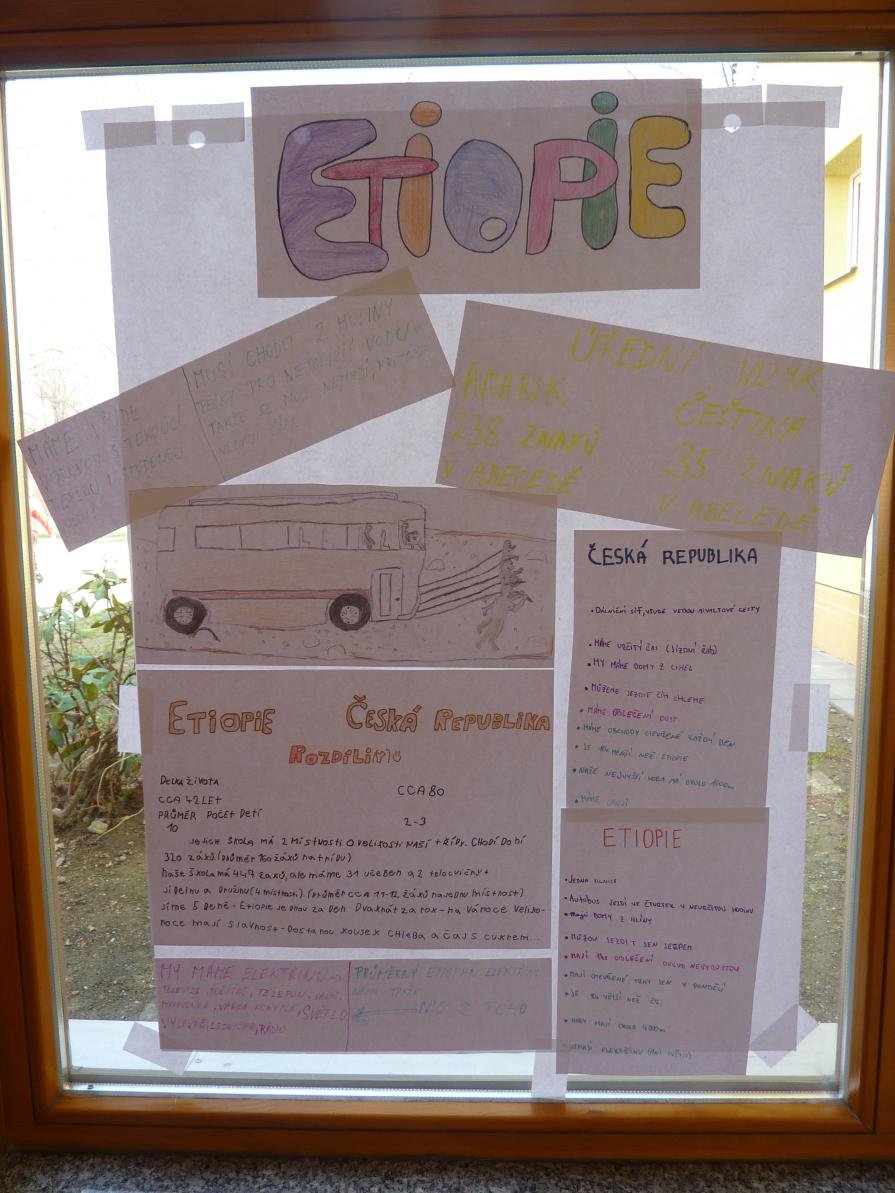 ETIOPIE
MÁME VŠUDE
VODOVOD S TEKOUCÍ
TEPLOU I STUDENOU
MUSÍ CHODIT 2 HODINY
PĚŠKY PRO NEJBLIŽŠÍ VODU
TAKŽE SE MOC NEMYJÍ, PROTOŽE
NEMAJÍ ČÍM.
ÚŘEDNÍ JAZYK
AMARIK
238 ZNAKŮ
V ABECEDĚ
ČEŠTINA
35 ZNAKŮ
V ABECEDĚ
ČESKÁ REPUBLIKA
• DÁLNIČNÍ SÍŤ, VŠUDE VEDOU ASFALTOVÉ CESTY
• MÁME URČITÝ ČAS (JÍZDNÍ ŘÁD)
• MY MÁME DOMY Z CIHEL
• MŮŽEME JEZDIT ČÍM CHCEME
• MÁME OBLEČENÍ DOST
• MÁME OBCHODY OTEVŘENÉ KAŽDÝ DEN
• JE MENŠÍ NEŽ ETIOPIE
• NAŠE NEJVYŠŠÍ HORA MÁ OKOLO 1600m
• MÁME
ETIOPIE ČESKÁ REPUBLIKA
ROZDÍLY
DELKA ŽIVOTA
CCA 42 LET CCA 80
PRŮMĚR POČET DETÍ
10 2-3
JEJICH ŠKOLA MÁ 2 MÍSTNOSTI O VELIKOSTI NAŠÍ TŘÍDY. CHODÍ DO NÍ
320 ŽÁKŮ. (PRŮMĚR 160 ŽÁKŮ NA TŘÍDU)
NAŠE ŠKOLA MÁ 447 ŽÁKŮ, ALE MÁME 31 UČEBEN A 2 TELOCVIČNY +
JÍDELNU A DRUŽINU (4 MÍSTNOSTI). (PRŮMĚR CCA 11-12, ŽÁKŮ NA JEDNU MÍSTNOST)
JÍME 5 DENĚ - ETIOPIE JEDNOU ZA DEN DVAKRÁT ZA ROK - NA VÁNOCE VELIKO-
NOCE MAJÍ SLAVNOST - DOSTANOU KOUSEK CHLEBA A ČAJ S CUKREM...
MY MÁME ELEKTŘINU
TELEVIZE, POČÍTAČ, TELEFON,
VARNÁ KONVICE, SVĚTLO
VYSAVAČ, LEDNIČKA, RÁDIO
PRŮMĚRNÝ ETIOPAN ELEKTŘINU
NEMÁ TAKŽE
NIC Z TOHO
ETIOPIE
• JEDNA SILNICE
• AUTOBUS JEZDÍ VE ČTVRTEK V NEURČITOU HODINU
• MAJÍ DOMY Z HLÍNY
• MŮŽOU JEZDIT JEN JEEPEM
• MAJÍ OBLEČENÍ
• MAJÍ OTEVŘENÉ TRHY JEN V PONDĚLÍ
• JE VĚTŠÍ NEŽ ČR
• HORY MAJÍ OKOLO 4000m
• NEMAJÍ ELEKTŘINU